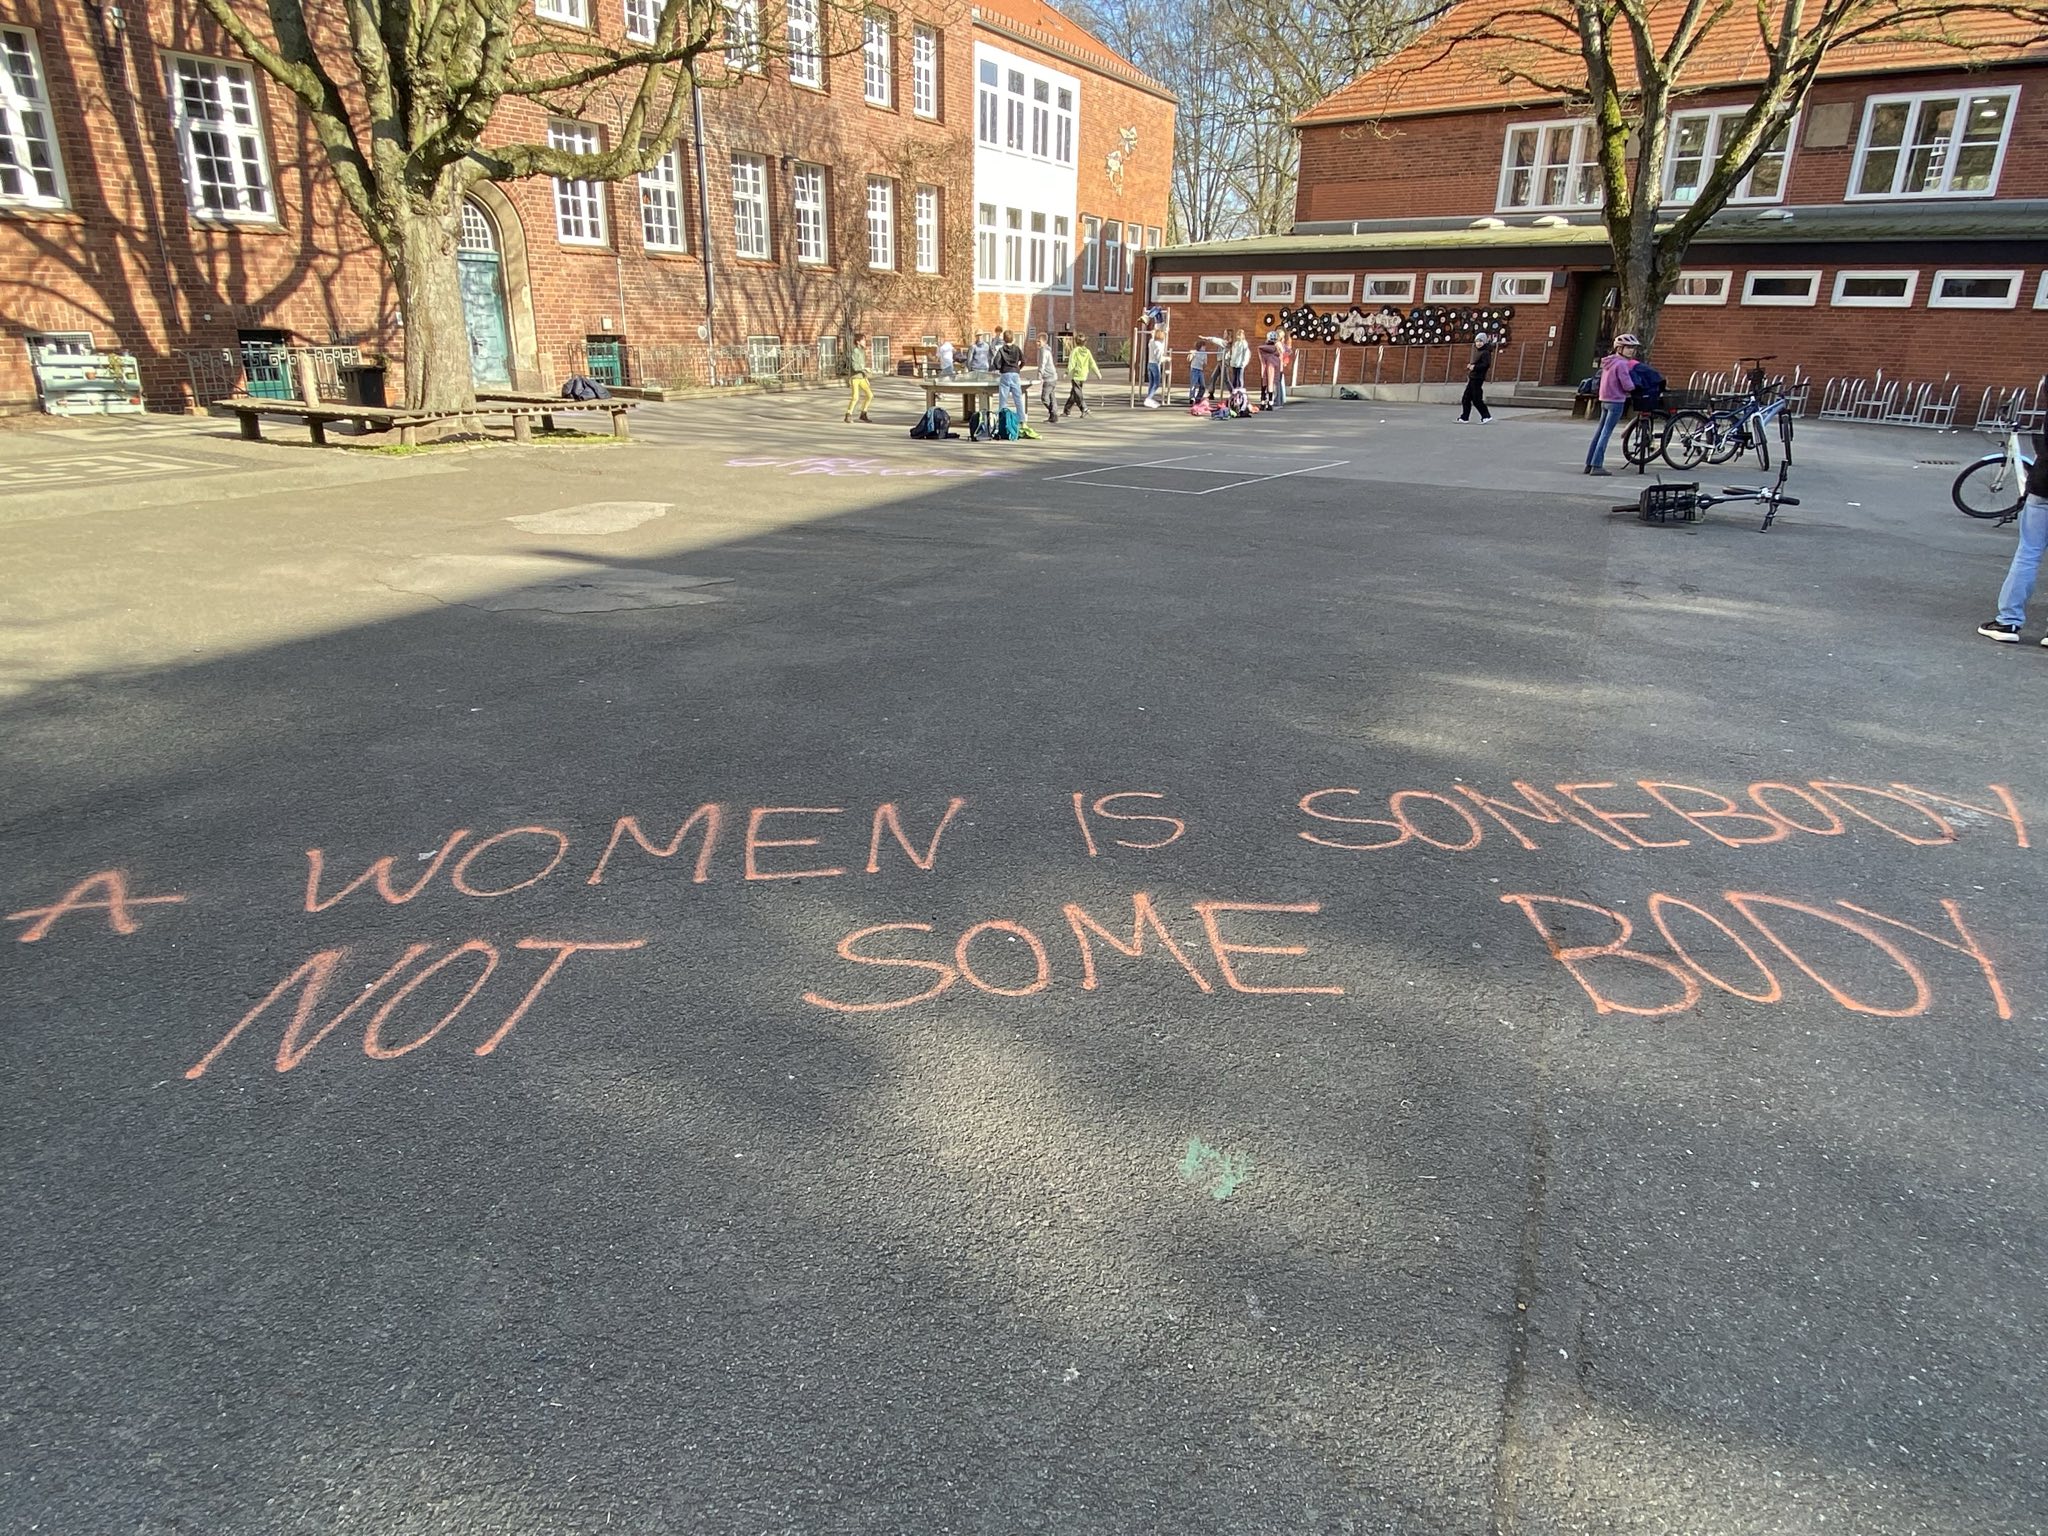 A WOMEN IS SOMEBODY
NOT SOME BODY